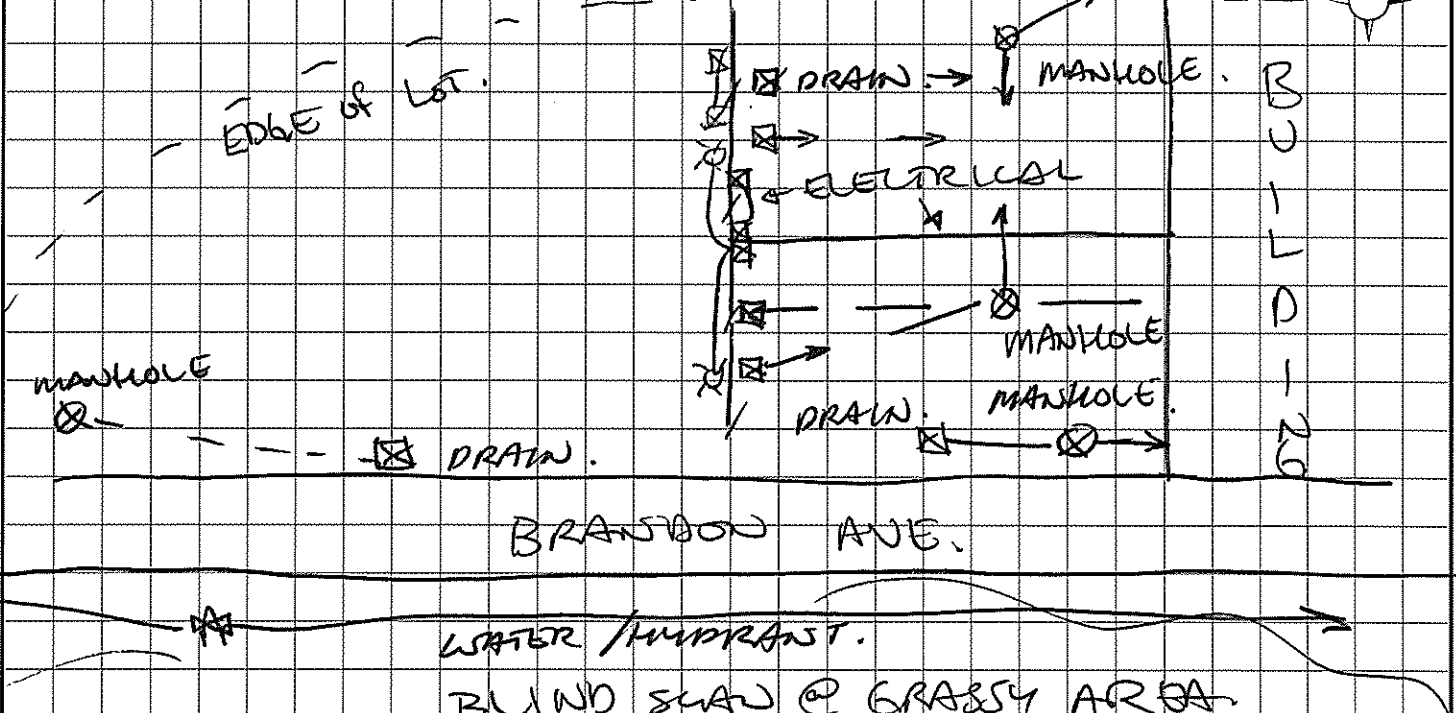 EDGE of LOT.
DRAIN.
MANHOLE.
ELECTRICAL
MANHOLE
MANHOLE
DRAIN.
MANHOLE.
DRAIN.
BUILDING
BRANDON AVE.
WATER / HYDRANT.
BLIND SCAN @ GRASSY AREA